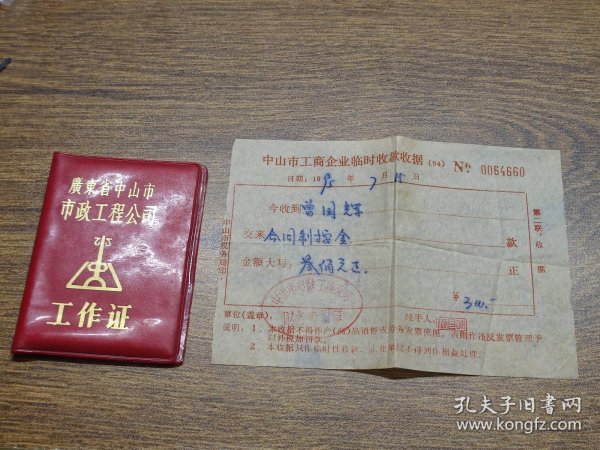 廣東省中山市
市政工程公司
工作证
中山市工商企业临时收款收据(94) № 0064660
日期:1995年7月15日
今收到 曾国辉
交来 合同制押金 款
金额大写: 叁佰元正. 正
¥ 300.-
第二联:收据
单位(盖章): 经手人:
说明:1、本收据不得作产(商)品销售或劳务发票使用,否则作违反发票管理予
以补税加罚款。
2、本收据只作临时性收款,企业单位不得列作报销处理。
孔夫子旧书网
www.kongfz.com